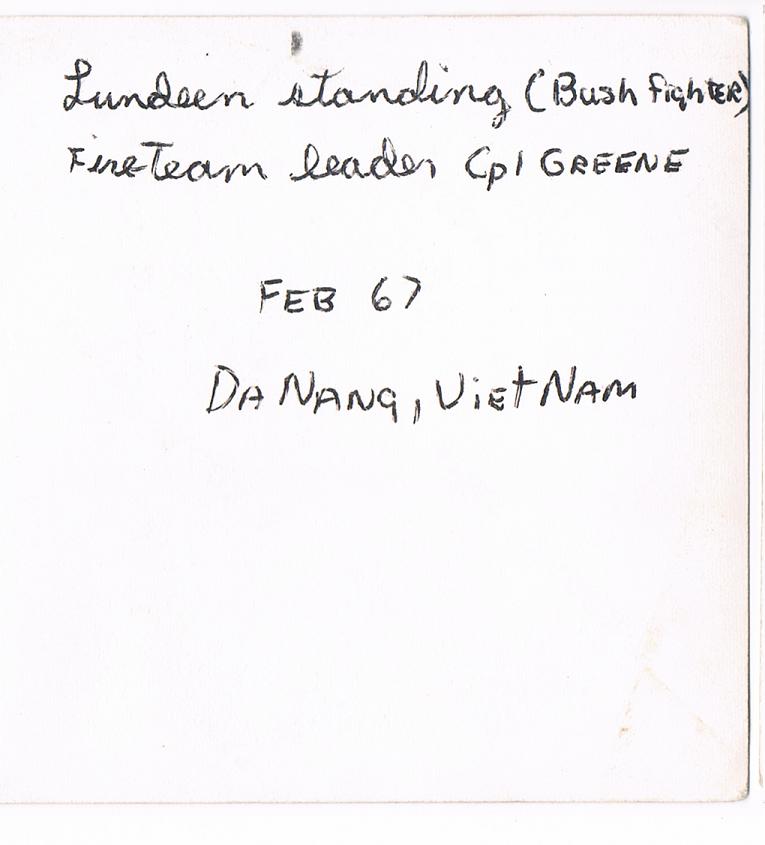 Lundeen standing (Bush fighter)
Fire Team leader Cpl GREENE
FEB 67
DA NANG, VietNAM